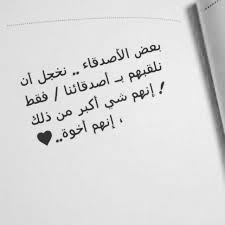 بعض الأصدقاء .. نخجل أن
نلقبهم بـ أصدقائنا / فقط
! إنهم شي أكبر من ذلك
، إنهم أخوة.. ♥